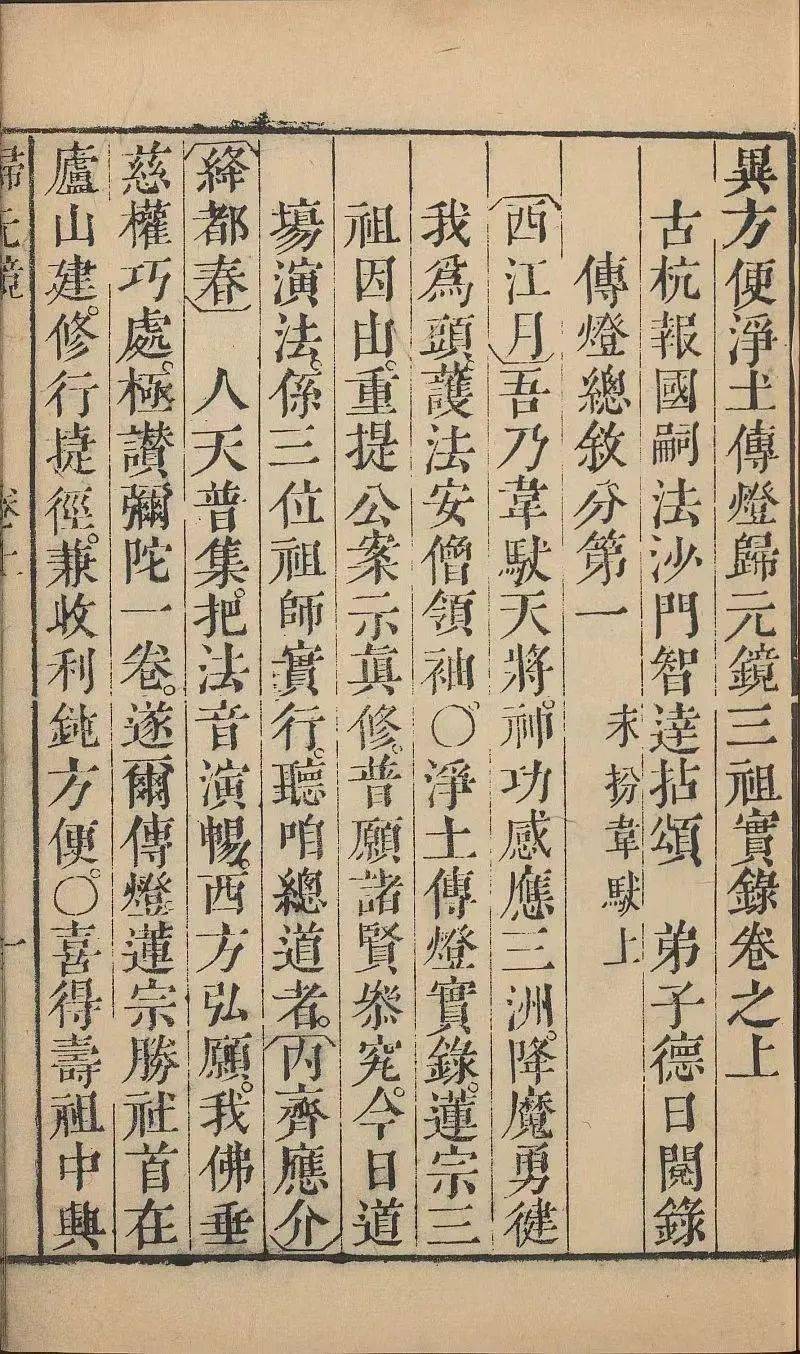 異方便淨土傳燈歸元鏡三祖實錄卷之上
古杭報國嗣法沙門智達拈頌　弟子德日閱錄
傳燈總敘分第一　末扮韋馱上
〔西江月〕吾乃韋馱天將。神功感應三洲。降魔勇健
我為頭。護法安僧領袖。〇淨土傳燈實錄。蓮宗三
祖因由。重提公案示眞修。普願諸賢叅究。今日道
場演法。係三位祖師實行。聽咱總道者。〔內齊應介〕
〔絳都春〕　人天普集。把法音演暢。西方弘願。我佛垂
慈權巧處。極讚彌陀一卷。遂爾傳燈蓮宗勝社首在
廬山建。修行捷徑。兼收利鈍方便。〇喜得壽祖中興
歸元鏡　卷上　一